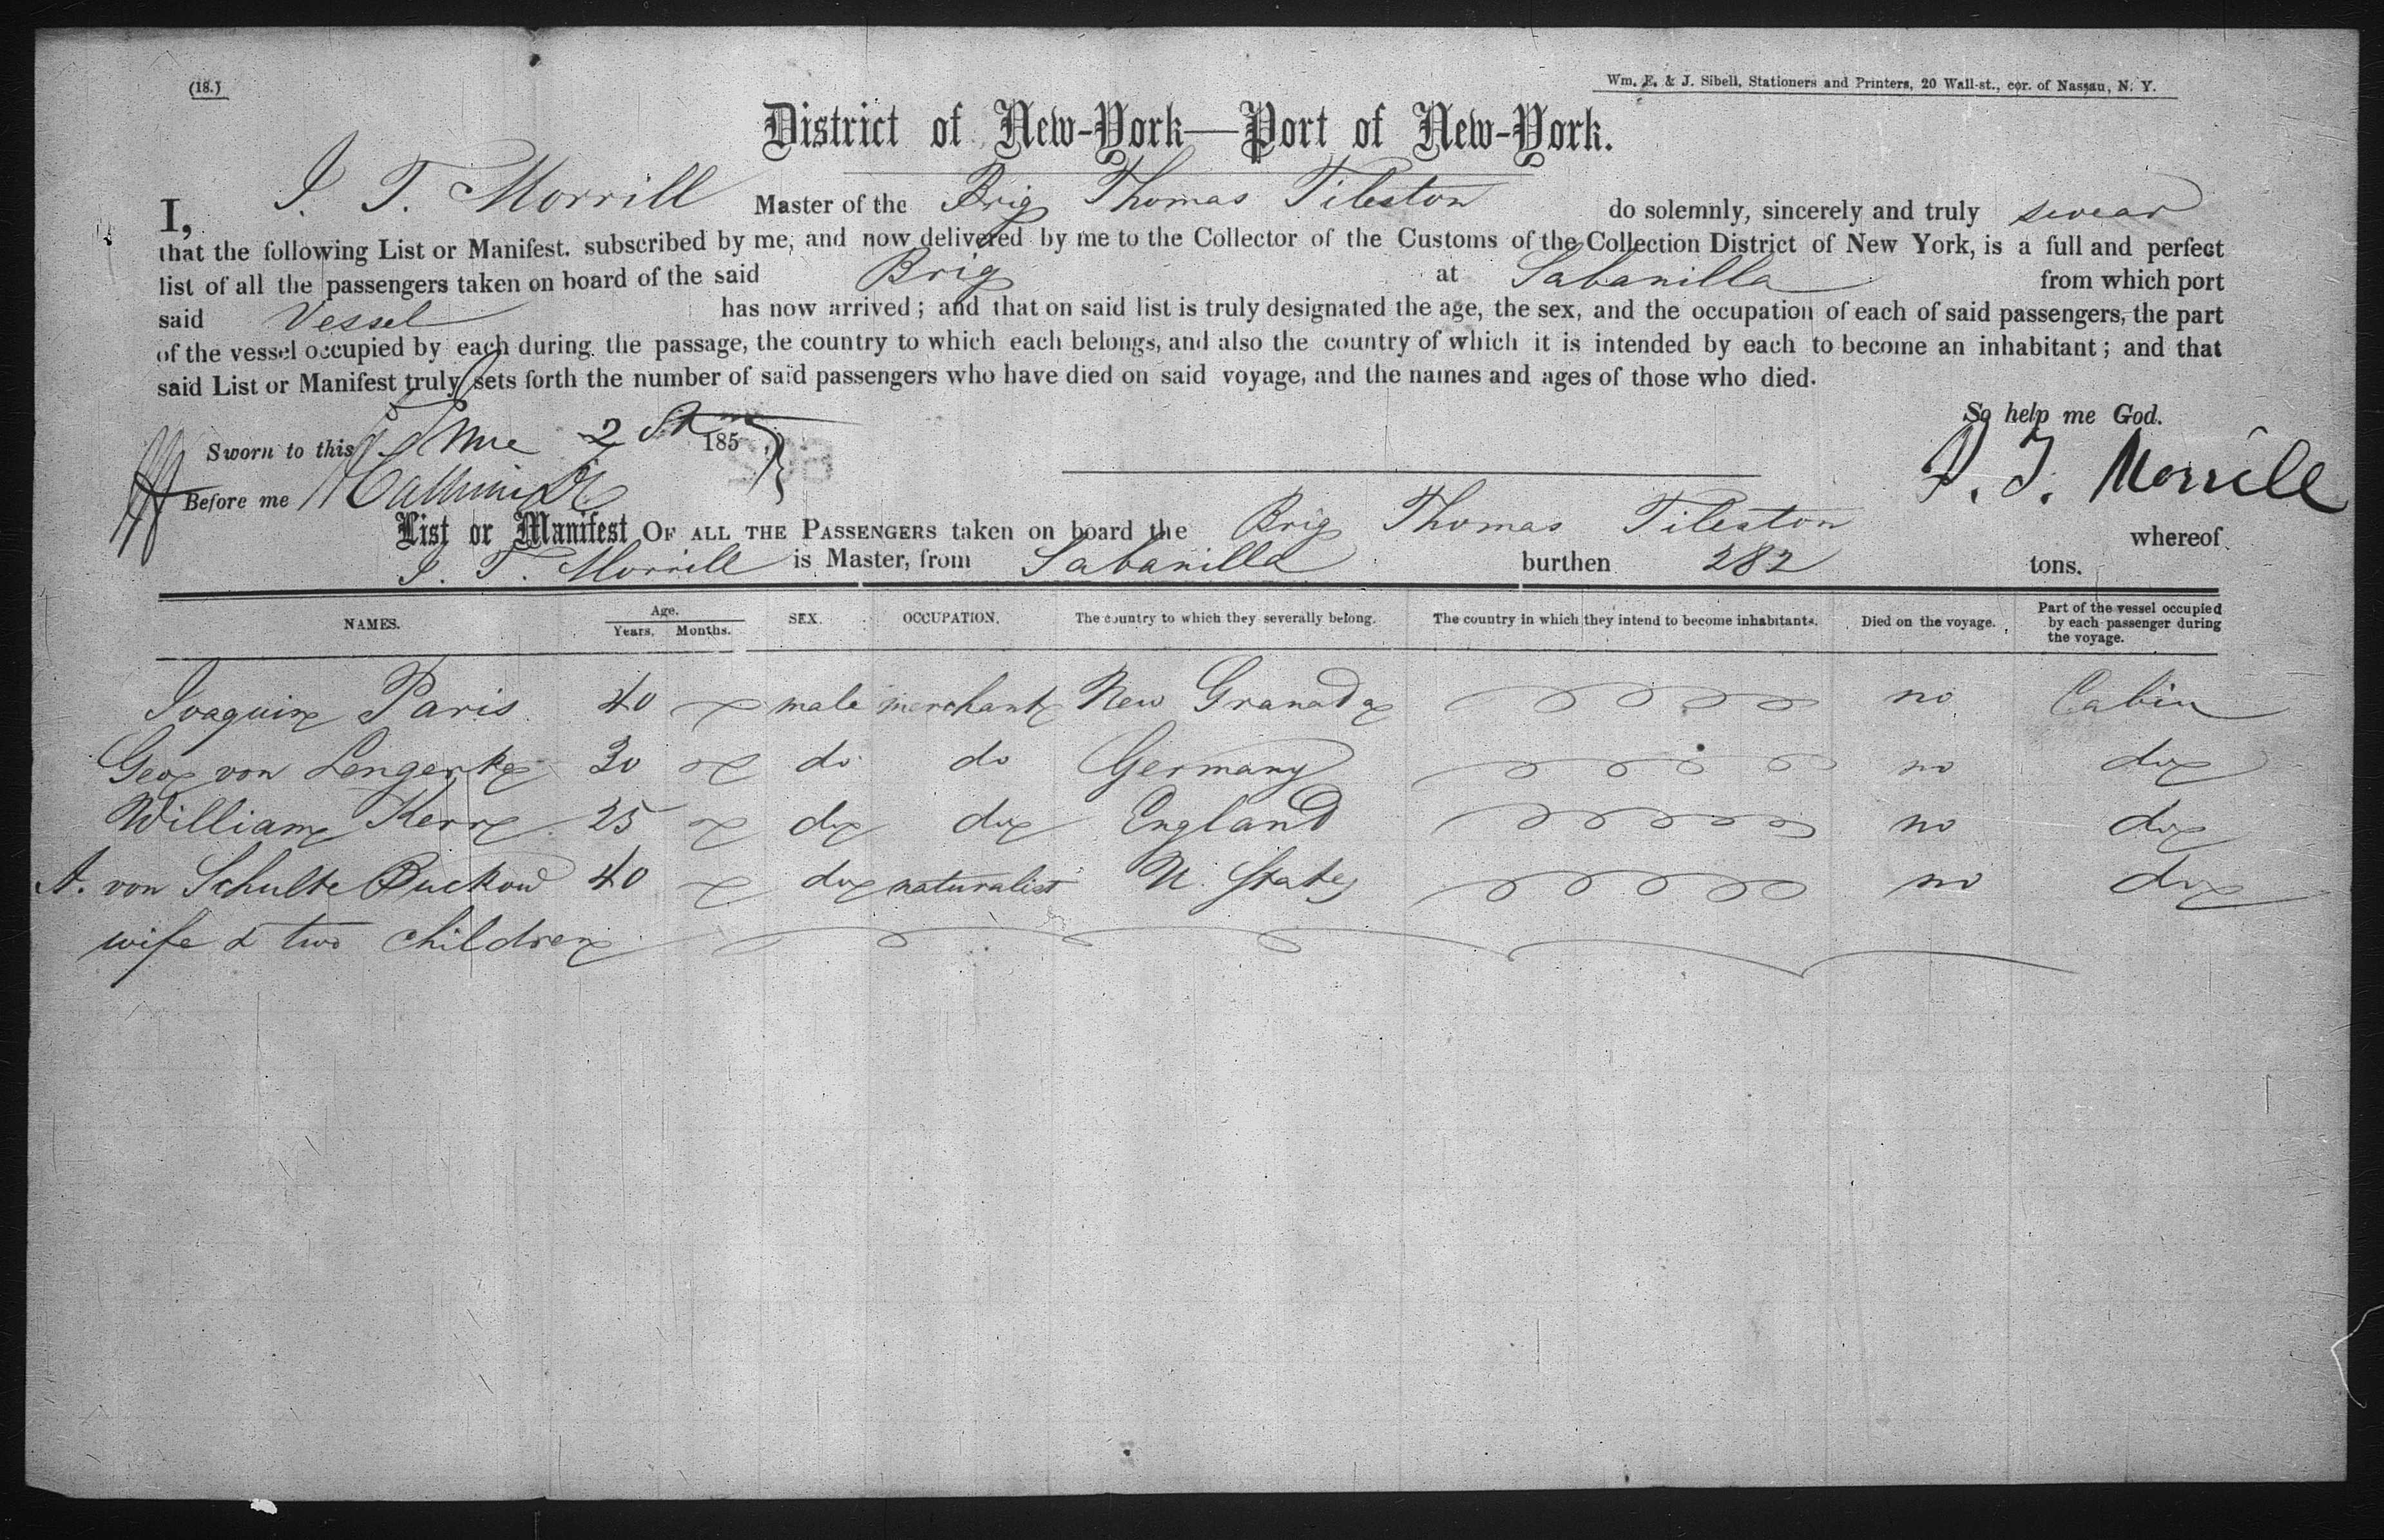 (18.)
Wm. E. & J. Sibell, Stationers and Printers, 20 Wall-st., cor. of Nassau, N. Y.
District of New-York—Port of New-York.
I, J. T. Morrill Master of the Brig Thomas Tileston do solemnly, sincerely and truly swear
that the following List or Manifest. subscribed by me, and now delivered by me to the Collector of the Customs of the Collection District of New York, is a full and perfect
list of all the passengers taken on board of the said Brig at Sabanilla from which port
said Vessel has now arrived; and that on said list is truly designated the age, the sex, and the occupation of each of said passengers, the part
of the vessel occupied by each during the passage, the country to which each belongs, and also the country of which it is intended by each to become an inhabitant; and that
said List or Manifest truly sets forth the number of said passengers who have died on said voyage, and the names and ages of those who died.
So help me God.
Sworn to this 185
J. T. Morrill
Before me
List or Manifest OF ALL THE PASSENGERS taken on board the Brig Thomas Tileston whereof
J. T. Morrill is Master, from Sabanilla burthen 282 tons.
NAMES. Age. Years. Months. SEX. OCCUPATION. The country to which they severally belong. The country in which they intend to become inhabitants. Died on the voyage. Part of the vessel occupied by each passenger during the voyage.
Joaquin Paris 40 male merchant New Granada no Cabin
Geo von Lengerke 30 do do Germany no do
William Kerr 25 do do England no do
A. von Schulte Buckow 40 do naturalist U. States no do
wife & two children